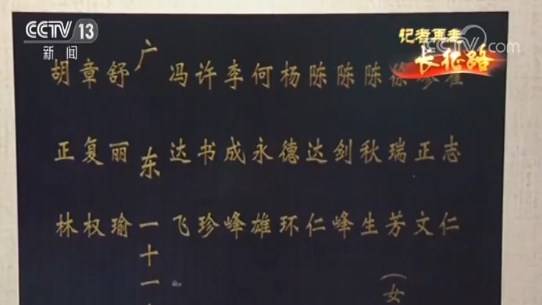 CCTV 13
新闻
记者再走
长征路
CCTV.
胡正林
章复权
舒丽瑜
广东一十一
冯达飞
许书珍
李成峰
何永雄
杨德环
陈达仁
陈剑峰
陈秋生
徐瑞芳(女
正文
志仁